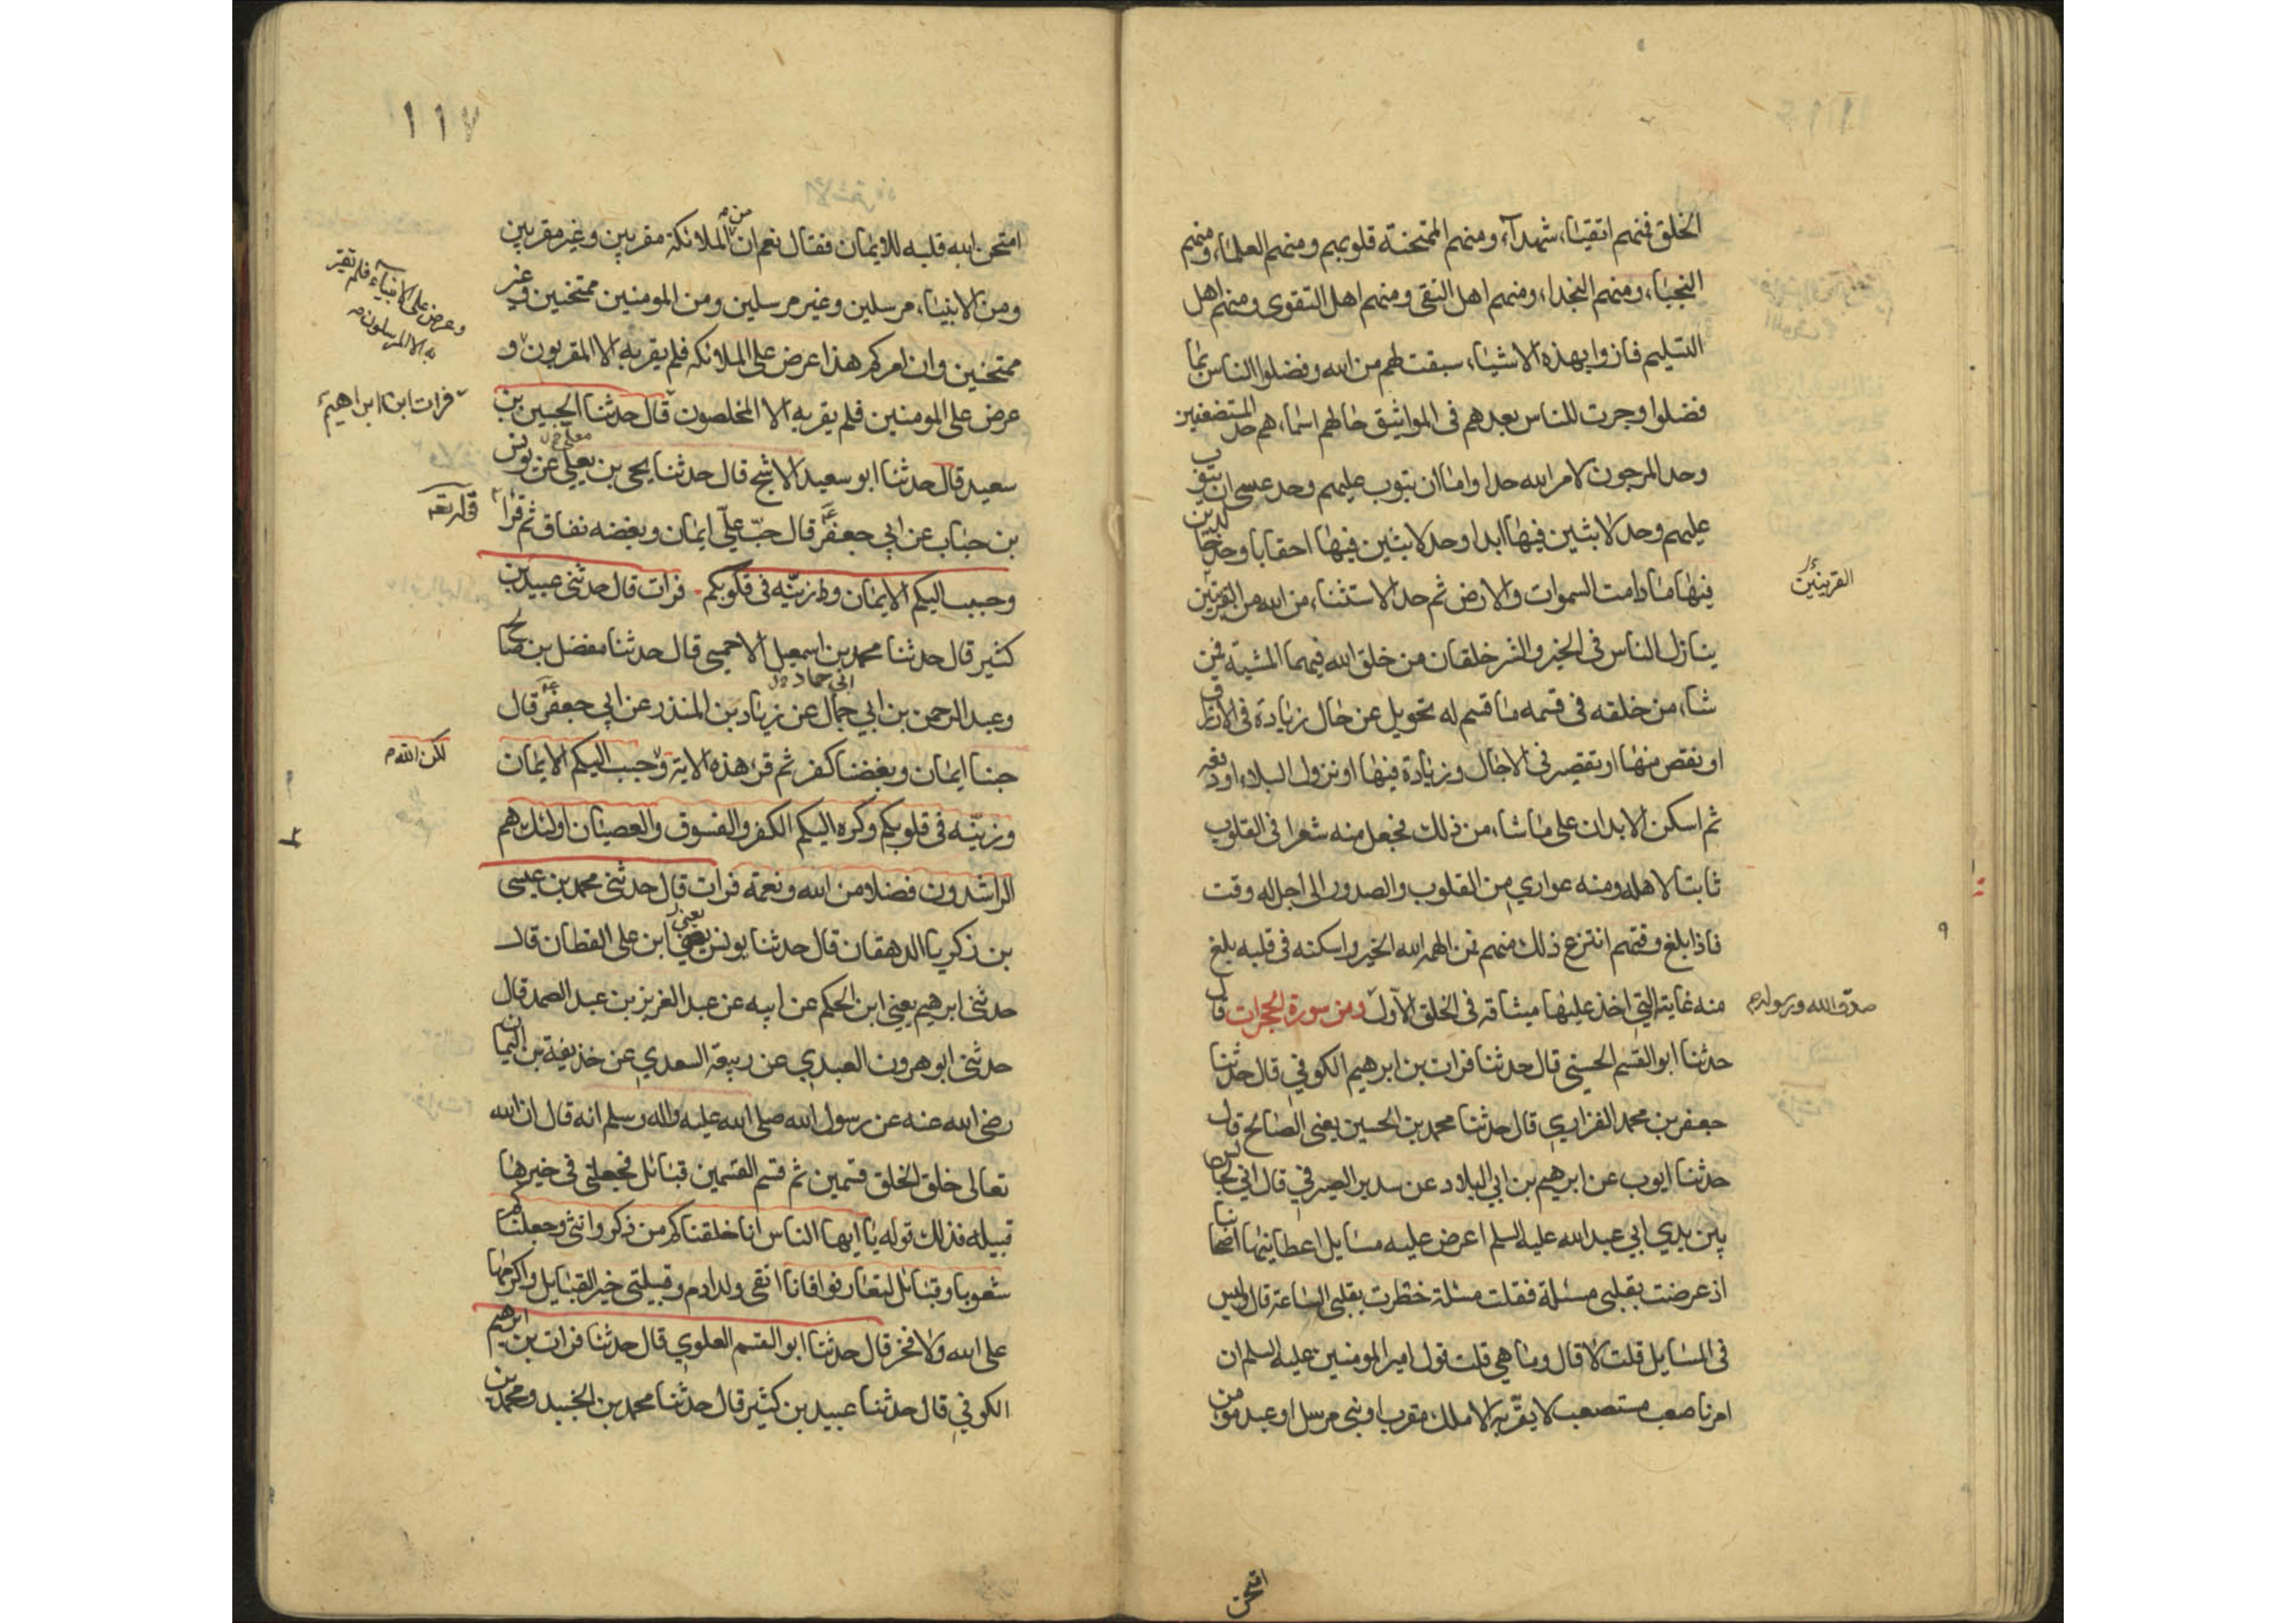 الخلق فمنهم اتقياء شهدآء ومنهم الممتحنة قلوبهم ومنهم العلماء ومنهم
النجباء ومنهم النجداء ومنهم اهل التقى ومنهم اهل التقوى ومنهم اهل
التسليم فازوا بهذه الاشياء سبقت لهم من الله وفضلوا الناس بما
فضلوا وجرت للناس بعدهم فى المواثيق حالهم اسماءهم حد المستضعفين
وحد المرجون لامر الله حدا واما ان يتوب عليهم وحد عسى ان يتوب
عليهم وحد لابثين فيها ابدا وحد لابثين فيها احقابا وحد خالدين
فيها ما دامت السموات والارض ثم حد الاستثناء من الله من القرينين
القرينين
ينازل الناس فى الخير والشر خلقان من خلق الله فيهما المشية فمن
شاء من خلقه فى قسمه ما قسم له تحويل عن حال زيادة فى الارزاق
او نقص منها او تقصير فى الاجال وزيادة فيها او نزول البلاء او دفعه
ثم اسكن الابدان على ما شاء من ذلك فجعل منه شعرا فى القلوب
ثابتا لاهله ومنه عواري من القلوب والصدور الى اجل له وقت
فاذا بلغ وقتهم انتزع ذلك منهم فمن الهمه الله الخير واسكنه فى قلبه بلغ
منه غايته التي اخذ عليها ميثاقه فى الخلق الاول ومن سورة الحجرات قال
صدق الله ورسوله
حدثنا ابو القسم الحسنى قال حدثنا فرات بن ابرهيم الكوفي قال حدثنا
جعفر بن محمد الفزاري قال حدثنا محمد بن الحسين يعنى الصائح قال
حدثنا ايوب عن ابرهيم بن ابي البلاد عن سدير الصيرفي قال اني لجالس
بين يدي ابي عبد الله عليه السلم اعرض عليه مسايل اعطانيها اصحابنا
اذ عرضت بقلبى مسئلة فقلت مسئلة خطرت بقلبى الساعة قال وليس
فى المسايل قلت لا قال وما هي قلت قول امير المومنين عليه السلم ان
امرنا صعب مستصعب لا يقرّ به الا ملك مقرب او نبى مرسل او عبد مومن
امتحن
١١٧
امتحن الله قلبه للايمان فقال نعم ان من الملائكة مقربين وغير مقربين
ومن الانبياء مرسلين وغير مرسلين ومن المومنين ممتحنين وغير
ممتحنين وان امركم هذا عرض على الملائكه فلم يقر به الا المقربون و
وعرض على الانبياء فلم يقر
به الا المرسلون
عرض على المومنين فلم يقر به الا المخلصون قال حدثنا الحسين بن
فرات ابن ابراهيم
سعيد قال حدثنا ابو سعيد الاشج قال حدثنا يحيى بن يعلى عن يونس
بن خباب عن ابي جعفر قال حبّ عليّ ايمان وبغضه نفاق ثم قرأ
قوله تعه
وحبب اليكم الايمان وزينّه فى قلوبكم فرات قال حدثنى عبيد بن
كثير قال حدثنا محمد بن اسمعيل الاحمسى قال حدثنا مفضل بن صالح
وعبد الرحمن بن ابي حماد عن زياد بن المنذر عن ابي جعفر قال
حبنا ايمان وبغضنا كفر ثم قرء هذه الاية وحبب اليكم الايمان
لكن الله
وزينّه فى قلوبكم وكره اليكم الكفر والفسوق والعصيان اولئك هم
الراشدون فضلا من الله ونعمة فرات قال حدثنى محمد بن عيسى
بن زكريا الدهقان قال حدثنا يونس يعني ابن على القطان قال
حدثنى ابرهيم يعنى ابن الحكم عن ابيه عن عبد العزيز بن عبد الصمد قال
حدثنى ابو هرون العبدي عن ربيعة السعدي عن حذيفة بن اليمان
رضى الله عنه عن رسول الله صلى الله عليه واله وسلم انه قال ان الله
تعالى خلق الخلق قسمين ثم قسم القسمين قبائل فجعلنى فى خيرها
قبيلة فذلك قوله يا ايها الناس انا خلقناكم من ذكر وانثى وجعلناكم
شعوبا وقبائل لتعارفوا فانا اتقى ولد ادم وقبيلتى خير القبايل واكرمها
على الله ولا فخر قال حدثنا ابو القسم العلوي قال حدثنا فرات بن ابرهيم
الكوفي قال حدثنا عبيد بن كثير قال حدثنا محمد بن الجنيد ومحمد بن